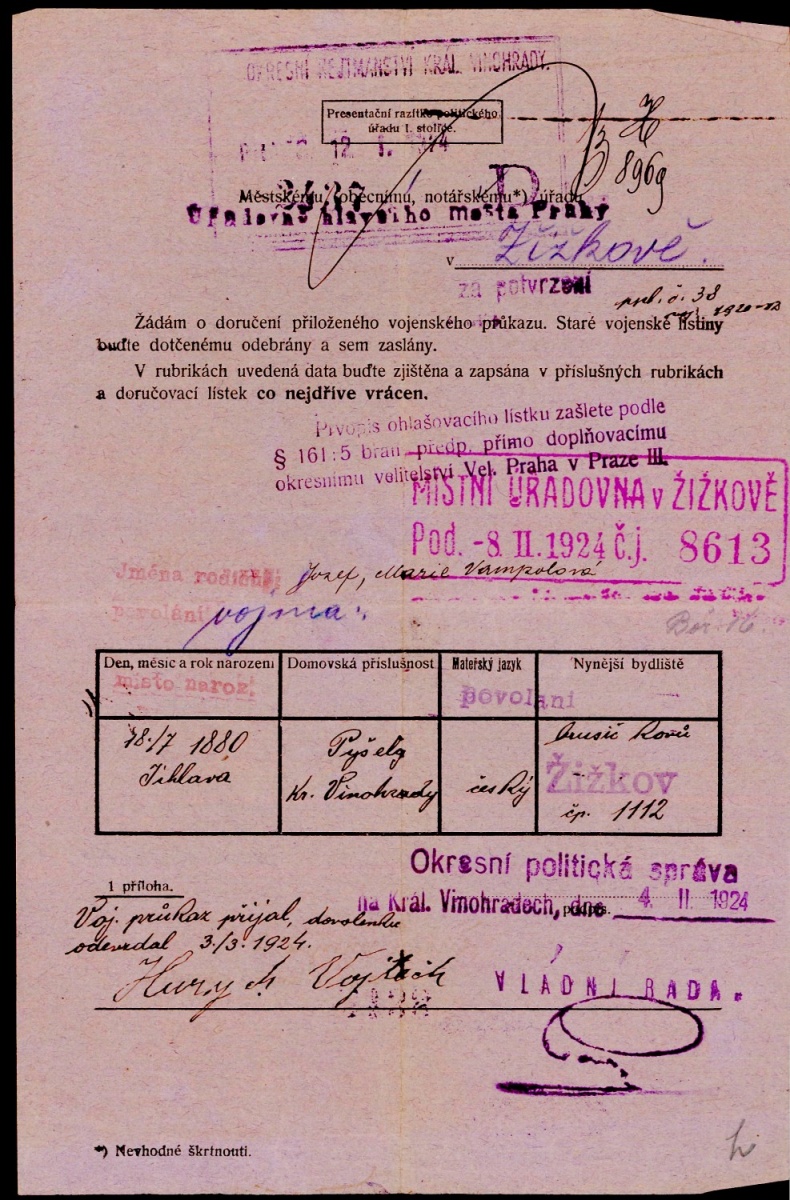 OKRESNÍ HEJTMANSTVÍ KRÁL. VINOHRADY.
Presentační razítko politického
úřadu I. stolice.
12
8969
Městskému, obecnímu, notářskému*) úřadu
Úřadovně hlavního města Prahy
v Žižkově.
za potvrzení
Žádám o doručení přiloženého vojenského průkazu. Staré vojenské listiny
buďte dotčenému odebrány a sem zaslány.
V rubrikách uvedená data buďte zjištěna a zapsána v příslušných rubrikách
a doručovací lístek co nejdříve vrácen.
Prvopis ohlašovacího lístku zašlete podle
§ 161:5 bran. předp. přímo doplňovacímu
okresnímu velitelství Vel. Praha v Praze III.
MÍSTNÍ ÚŘADOVNA v ŽIŽKOVĚ
Pod. -8. II. 1924 č.j. 8613
Jména rodičů, Jozef, Marie Vampolová
povolání
vojína:
Den, měsíc a rok narození Domovská příslušnost Mateřský jazyk Nynější bydliště
místo naroz. povolání
18./7 1880 Pyšely brusič kovů
Jihlava Kr. Vinohrady český Žižkov
čp. 1112
Okresní politická správa
1 příloha.
na Král. Vinohradech, dne 4. II. 1924
Voj. průkaz přijal, dovolenku
odevzdal 3./3. 1924.
Hurych Vojtěch
VLÁDNÍ RADA.
*) Nevhodné škrtnouti.